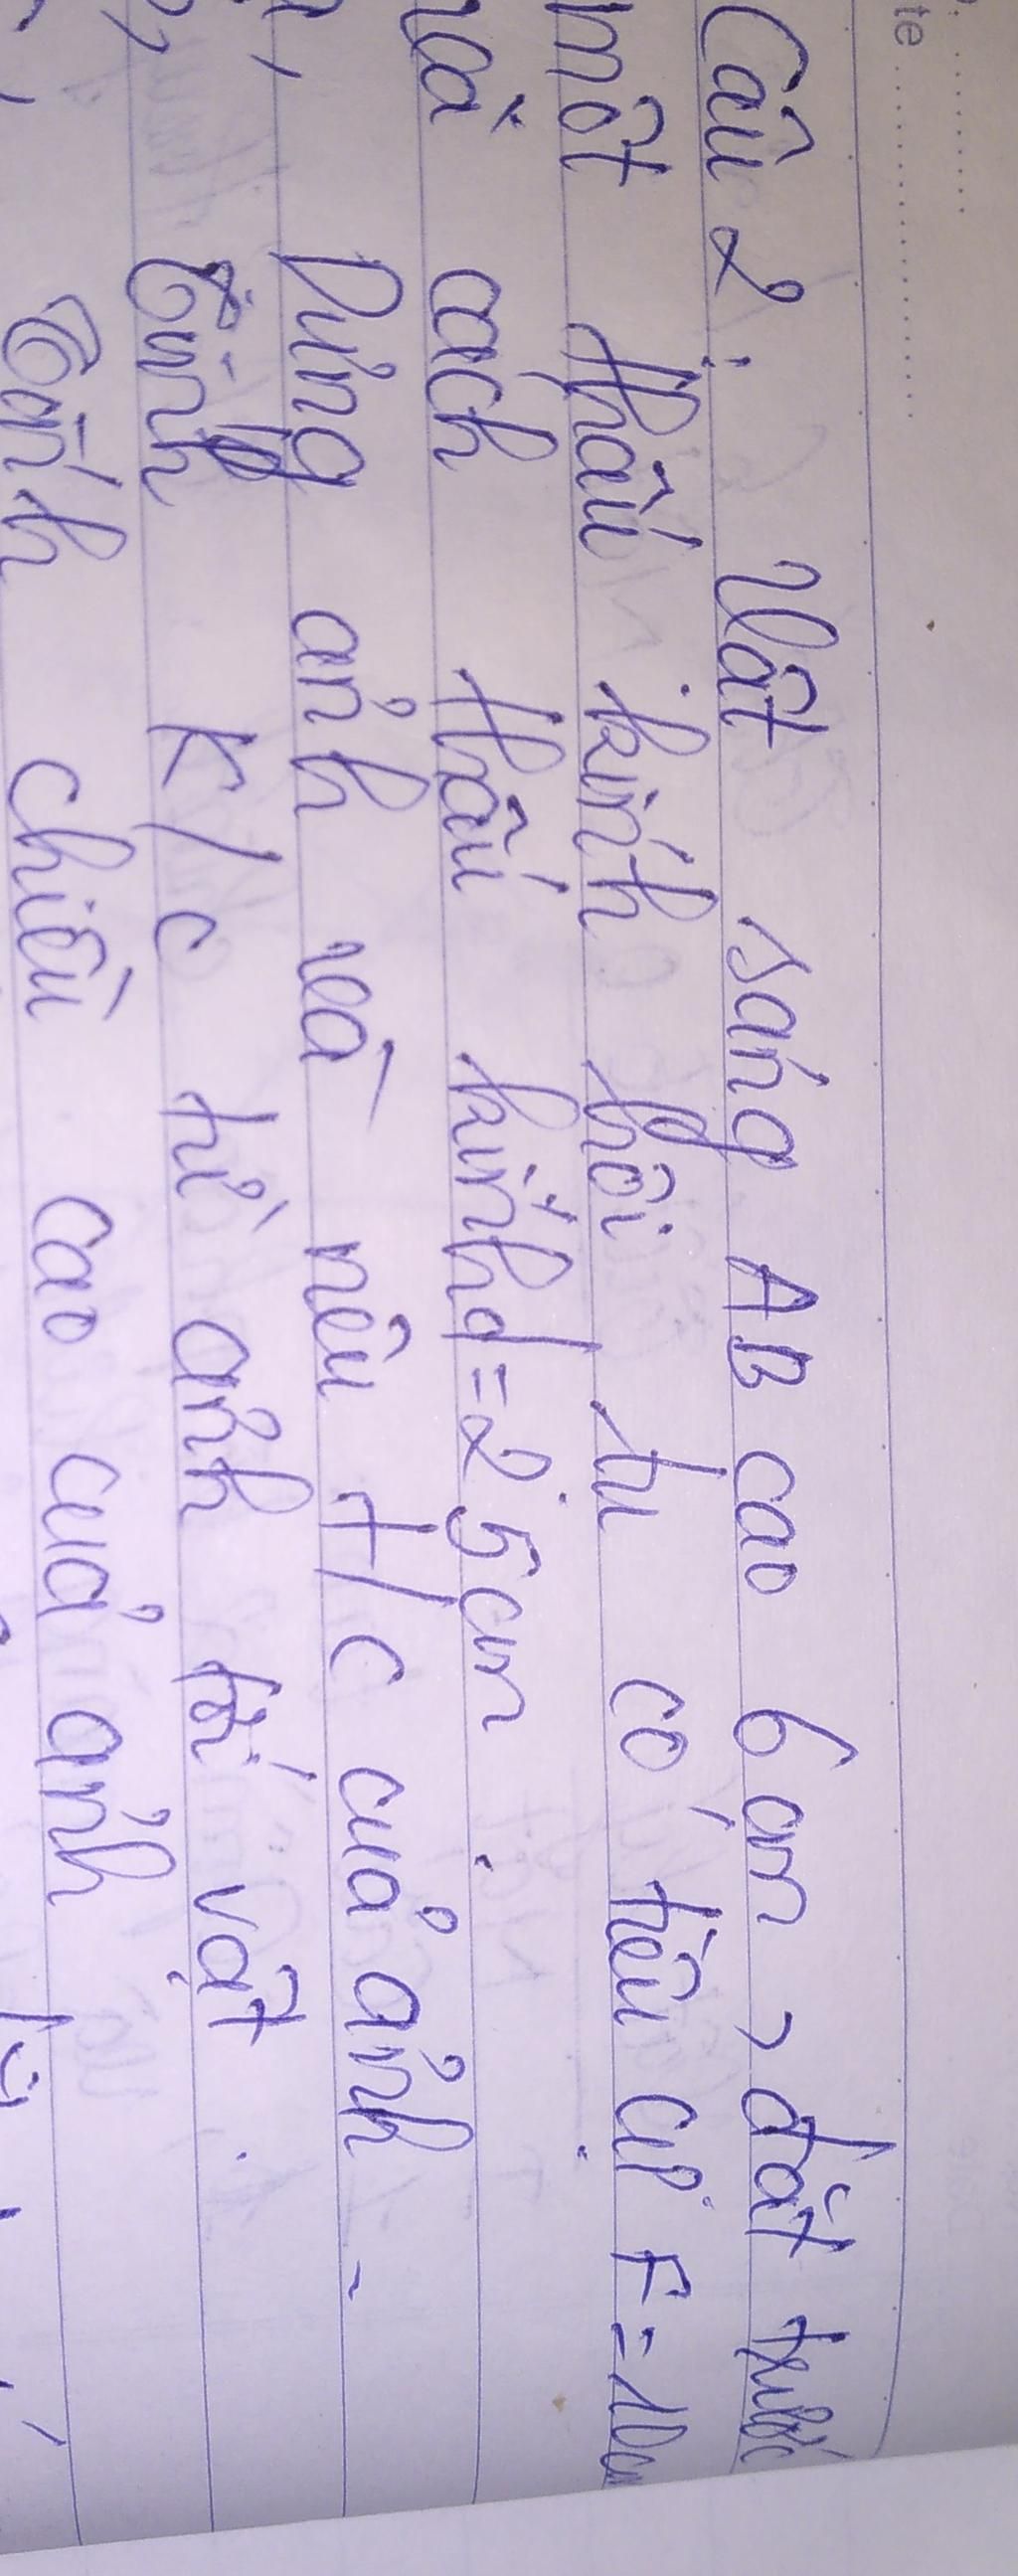 te ..........
Câu 2: Vật sáng AB cao 6cm, đặt trước
một thấu kính hội tụ có tiêu cự F=10cm
và cách thấu kính d=25cm.
Dựng ảnh và nêu t/c của ảnh.
Tính k/c từ ảnh tới vật.
Tính chiều cao của ảnh